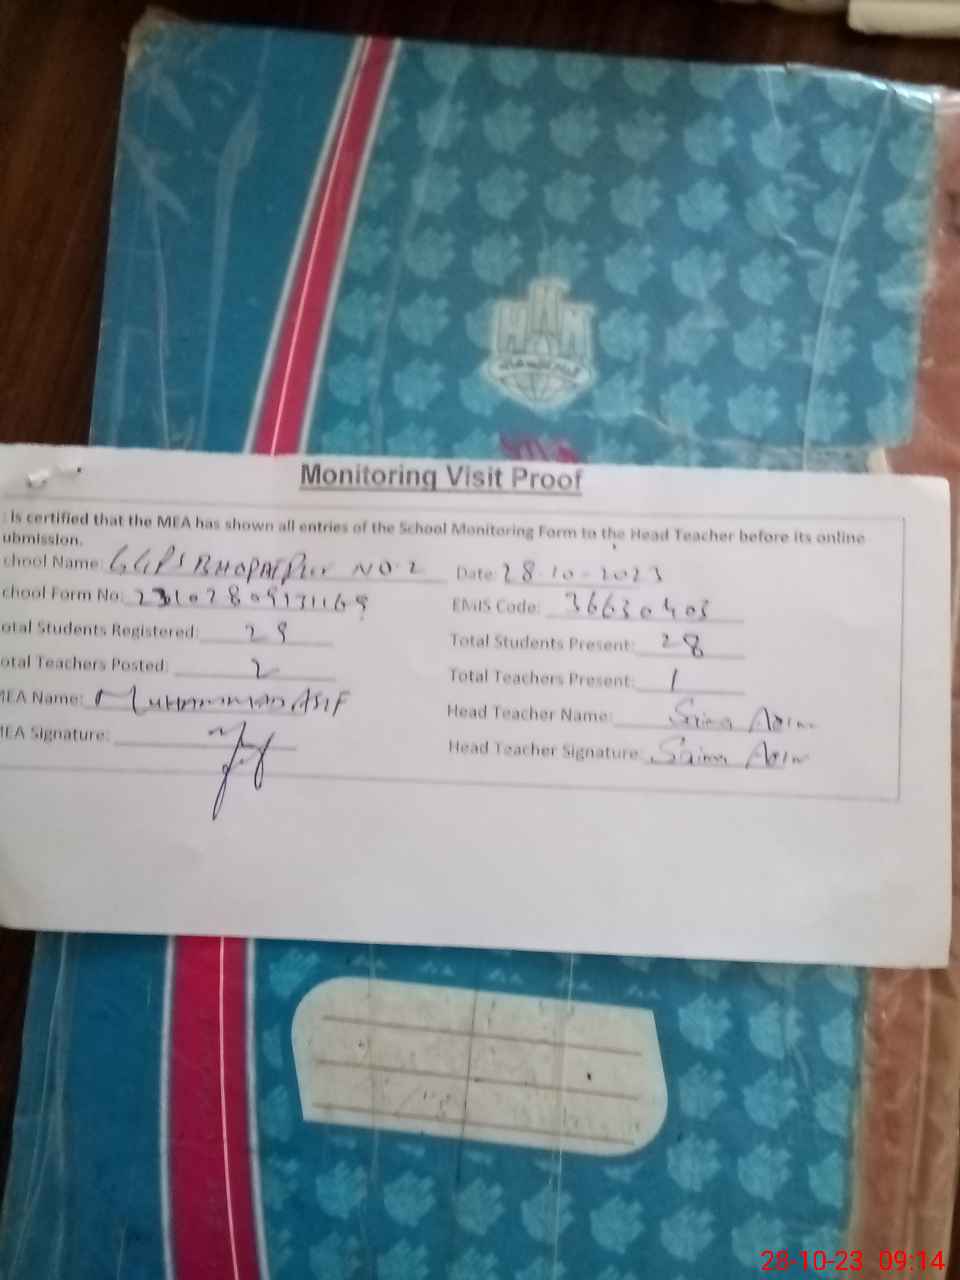 Monitoring Visit Proof
: is certified that the MEA has shown all entries of the School Monitoring Form to the Head Teacher before its online
ubmission.
chool Name: GGPS NO-2 Date: 28-10-2023
chool Form No: EMIS Code: 36630403
otal Students Registered: 29 Total Students Present: 28
otal Teachers Posted: 2 Total Teachers Present: 1
MEA Name: Muhammad Asif Head Teacher Name: Saima
MEA Signature: Head Teacher Signature: Saima
28-10-23 09:14